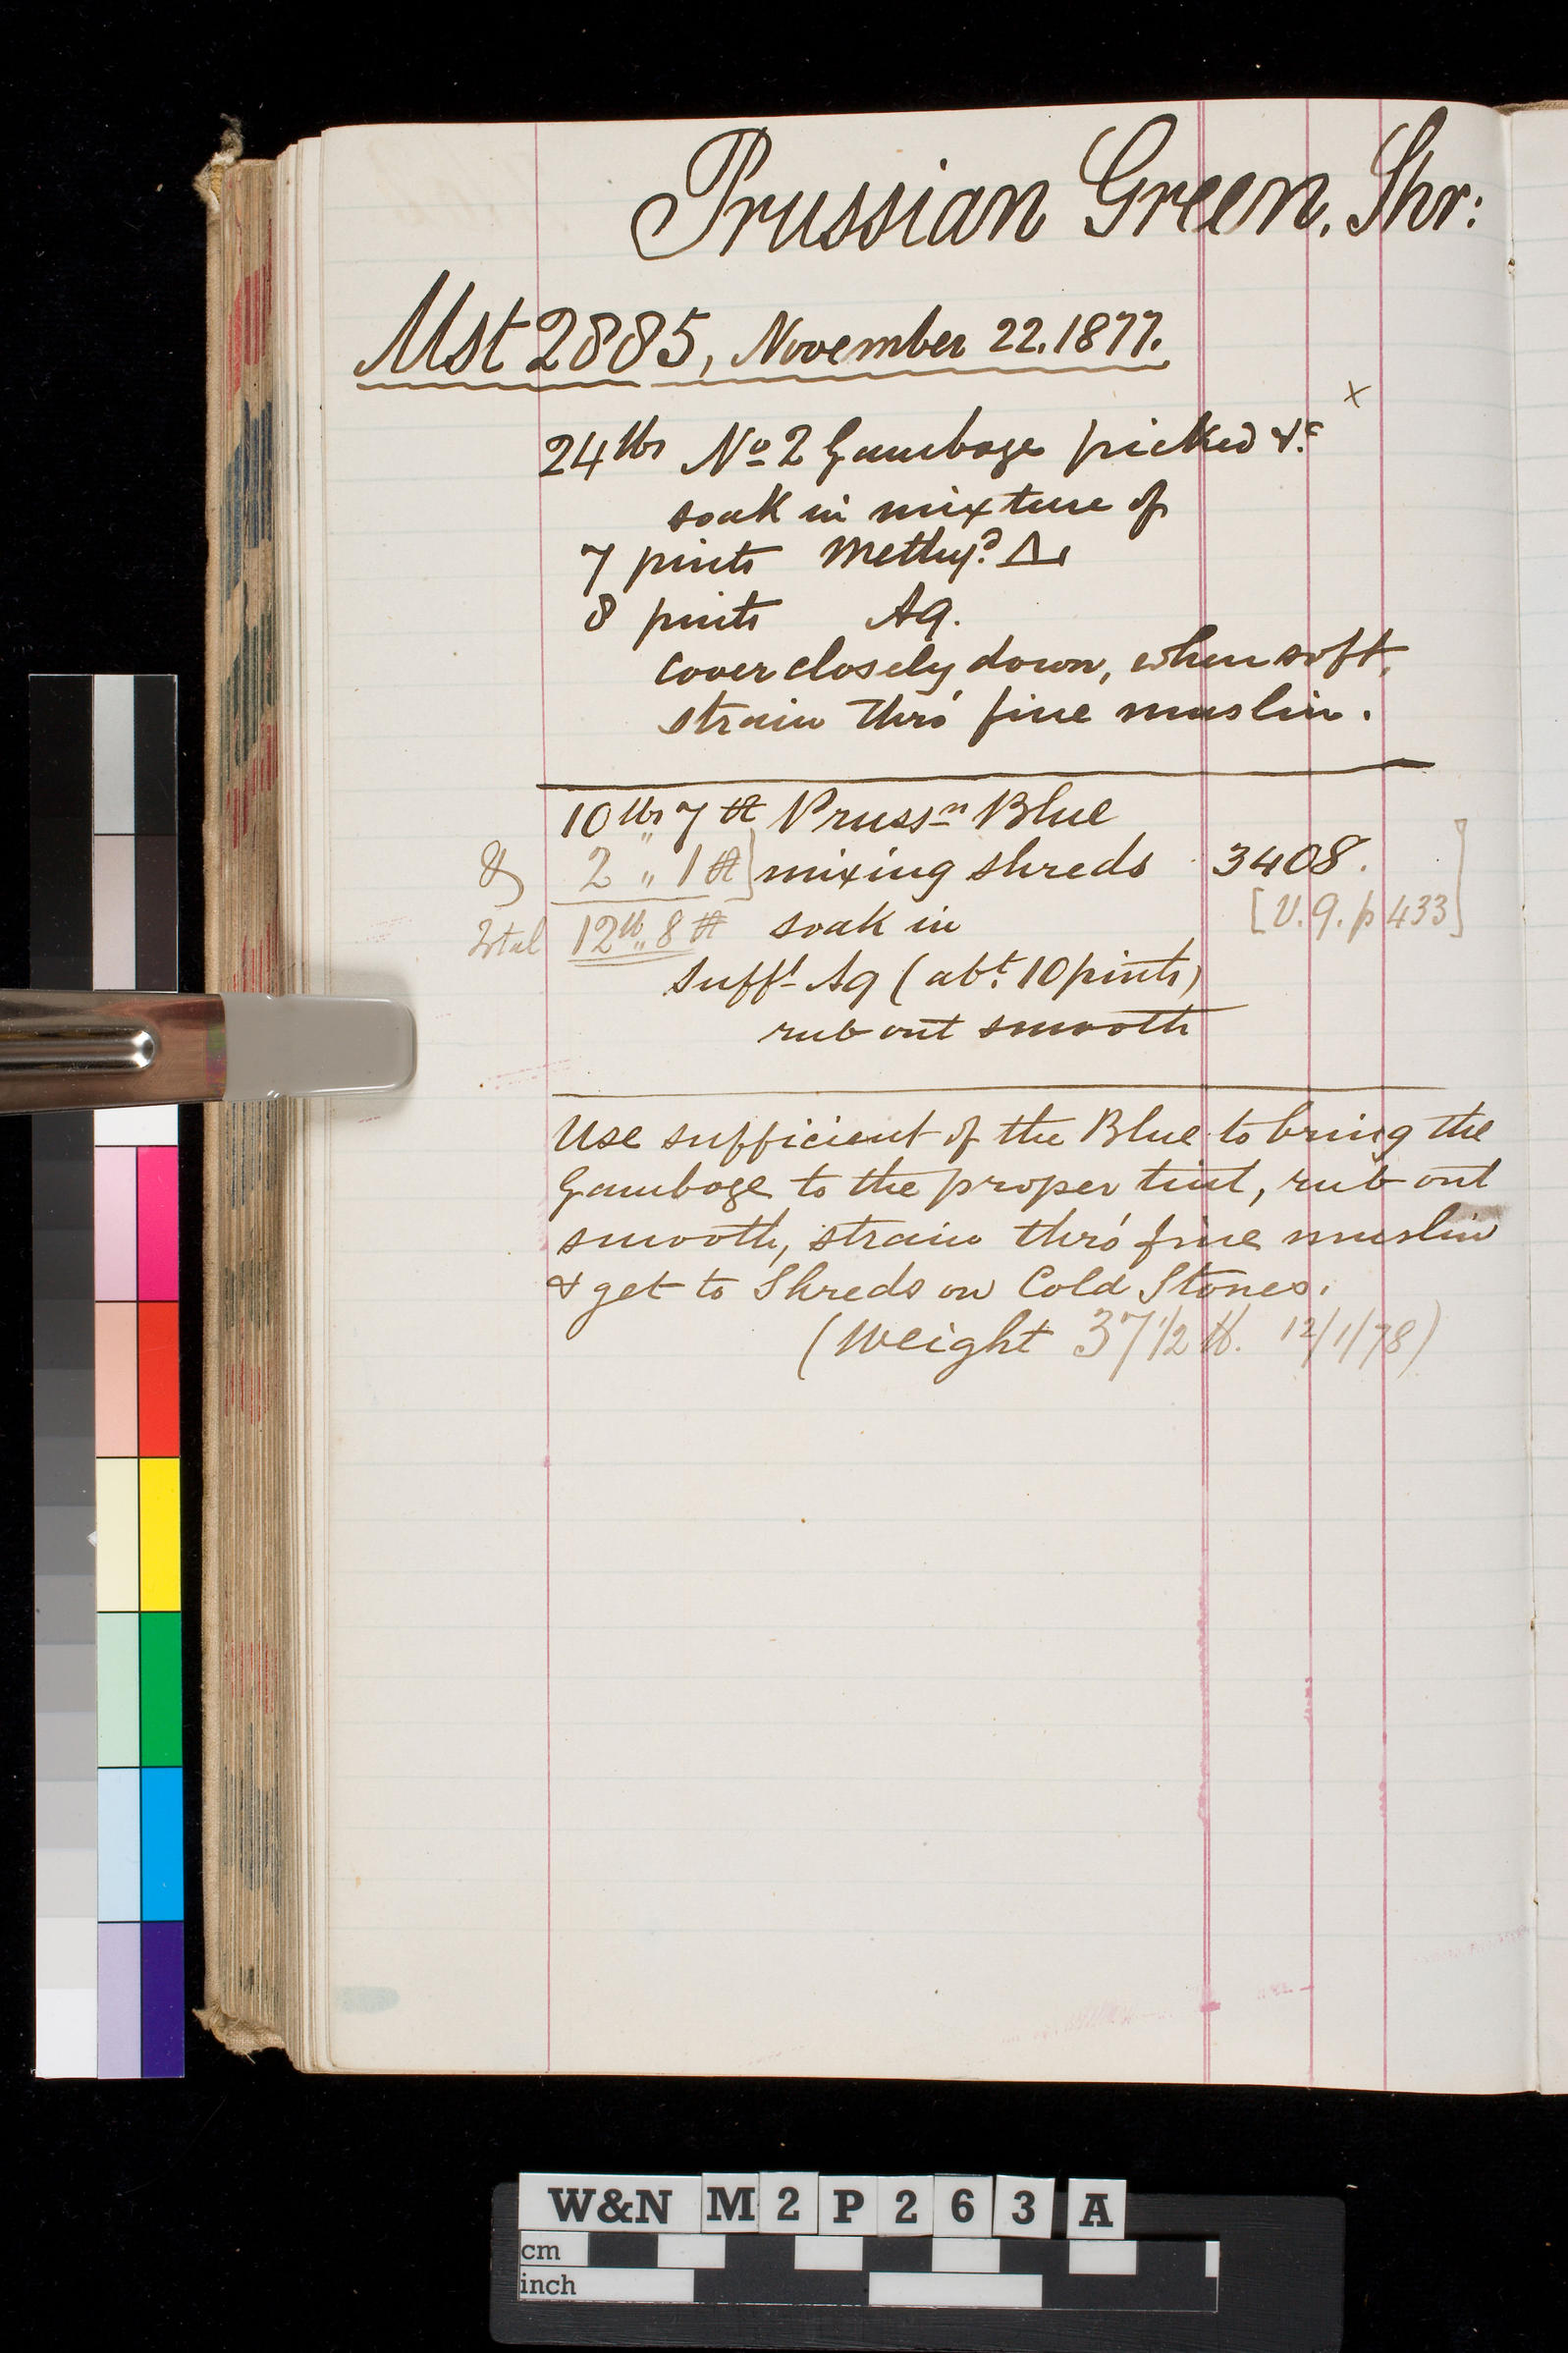 Prussian Green. Shr:
Mst 2885, November 22. 1877.
x
24 lbs No 2 Gamboge picked &c
soak in mixture of
7 pints Methyd. Δ
8 pints Aq.
cover closely down, when soft,
strain thro' fine muslin.
10 lbs 7 Prussn Blue
& 2 " 1 ] mixing shreds 3408.
Total 12 lb " 8 soak in [V.9. p 433]
Sufft Aq (abt. 10 pints)
rub out smooth
Use sufficient of the Blue to bring the
Gamboge to the proper tint, rub out
smooth, strain thro' fine muslin
& get to Shreds on Cold Stones.
(Weight 37 1/2 lb. 12/1/78)
W&N M2P263A
cm
inch